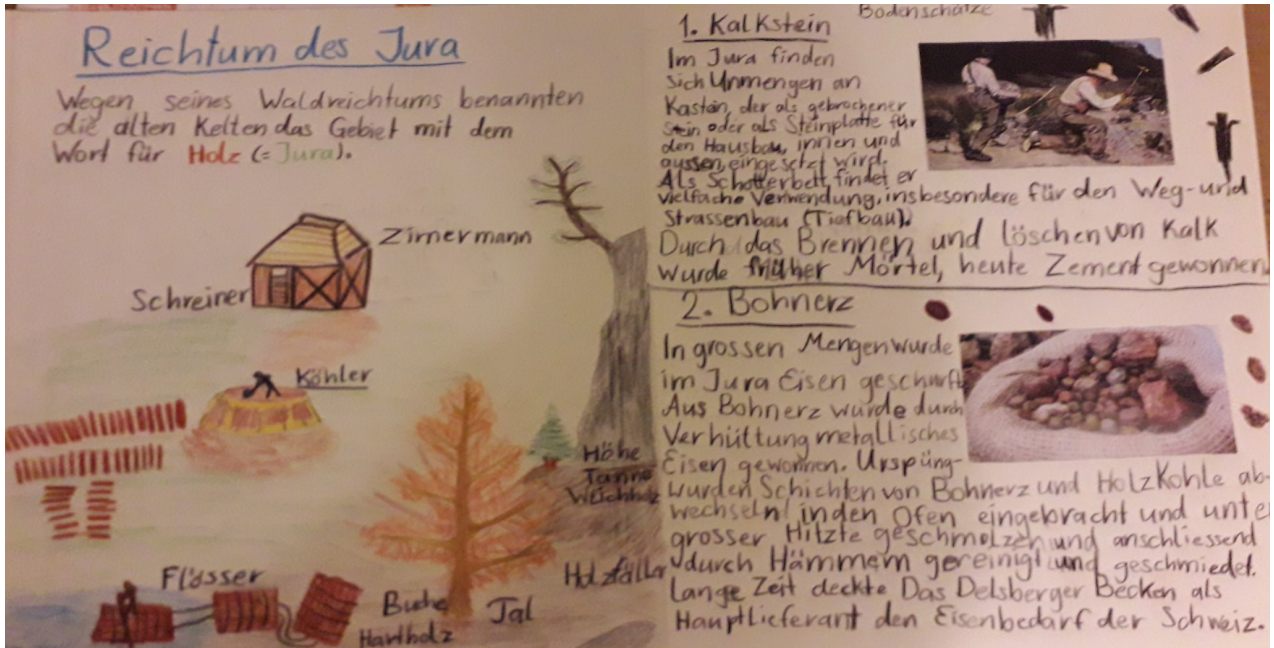 Reichtum des Jura
Wegen seines Waldreichtums benannten
die alten Kelten das Gebiet mit dem
Wort für Holz (= Jura).
Zimermann
Schreiner
Köhler
Höhe
Tanne
Weichholz
Holzfäller
Flösser
Buche
Hartholz
Tal
Bodenschätze
1. Kalkstein
Im Jura finden
sich Unmengen an
Kasten, der als gebrochener
Stein oder als Steinplatte für
den Hausbau, innen und
aussen, eingesetzt wird.
Als Schotterbett findet er
vielfache Verwendung, insbesondere für den Weg- und
Strassenbau (Tiefbau).
Durch das Brennen und löschen von Kalk
wurde früher Mörtel, heute Zement gewonnen.
2. Bohnerz
In grossen Mengen wurde
im Jura Eisen geschürft
Aus Bohnerz wurde durch
Verhüttung metallisches
Eisen gewonnen. Urspüng-
wurden Schichten von Bohnerz und Holzkohle ab-
wechselnd in den Ofen eingebracht und unter
grosser Hitzte geschmolzen und anschliessend
durch Hämmern gereinigt und geschmiedet.
Lange Zeit deckte Das Delsberger Becken als
Hauptlieferant den Eisenbedarf der Schweiz.